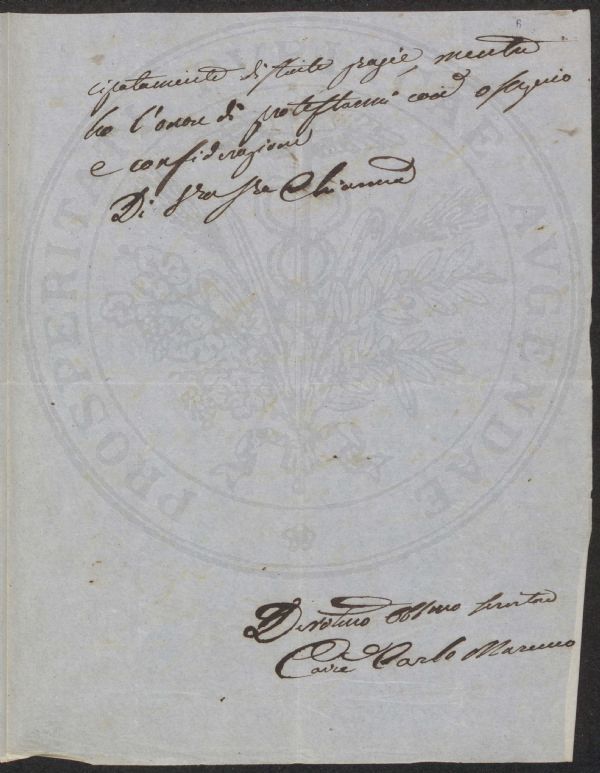 6
cipatamente distinte grazie, mentre
ho l'onore di protestarmi con ossequio
e considerazione
Di
Devotmo Obbmo Servitore
Cave Carlo Marenco
PROSPERITATI PUBLICAE AUGENDAE